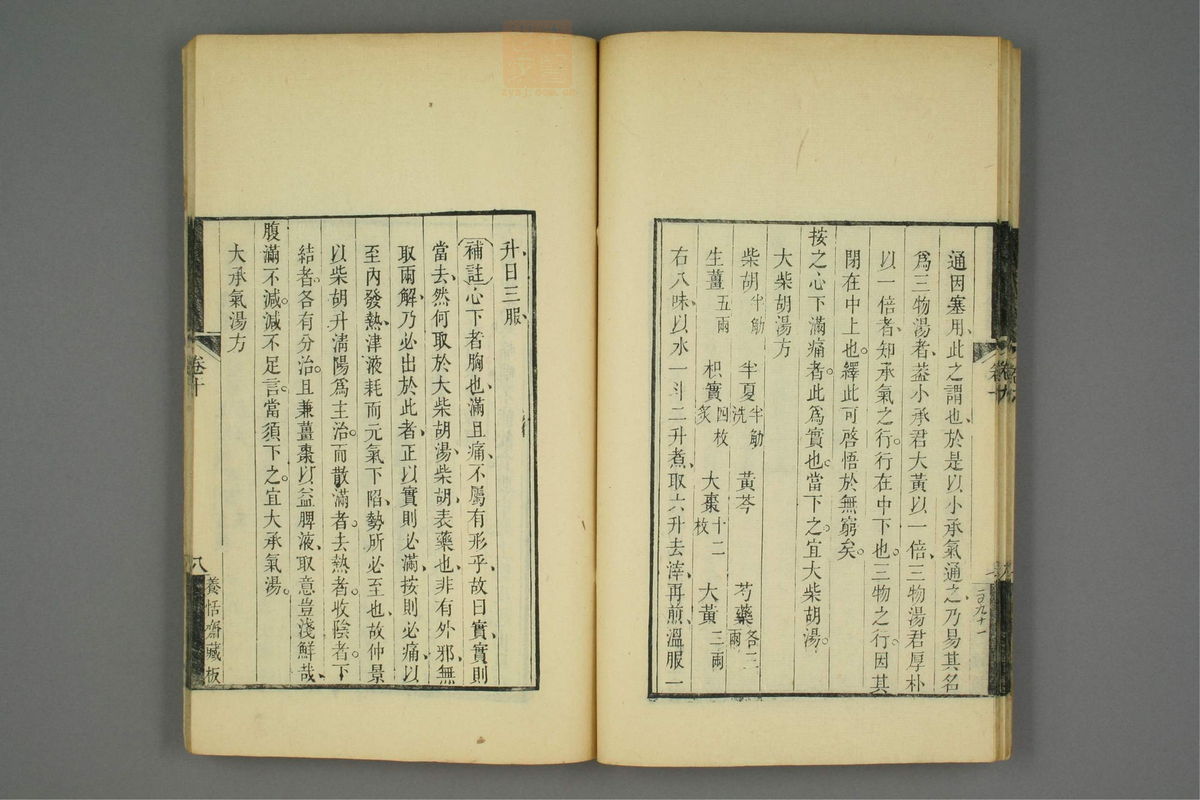 通因塞用、此之謂也、於是以小承氣通之、乃易其名
爲三物湯者、葢小承君大黃以一倍、三物湯君厚朴
以一倍者、知承氣之行。行在中下也。三物之行。因其
閉在中上也。繹此可啓悟於無窮矣。
按之心下滿痛者。此爲實也。當下之。宜大柴胡湯。
大柴胡湯方
柴胡半觔 半夏半觔洗 黃芩 芍藥各三兩
生薑五兩 枳實四枚炙 大棗十二枚 大黃三兩
右八味、以水一斗二升煮、取六升去滓、再煎、溫服一
升、日三服、
補註心下者胸也、滿且痛、不屬有形乎、故曰實、實則
當去、然何取於大柴胡湯、柴胡、表藥也、非有外邪、無
取兩解、乃必出於此者、正以實則必滿、按則必痛、以
至內發熱、津液耗而元氣下陷、勢所必至也、故仲景
以柴胡升淸陽爲主治。而散滿者。去熱者。收陰者。下
結者。各有分治。且兼薑棗以益脾液、取意豈淺鮮哉、
腹滿不減。減不足言。當須下之。宜大承氣湯。
大承氣湯方
卷十
八
養恬齋藏板